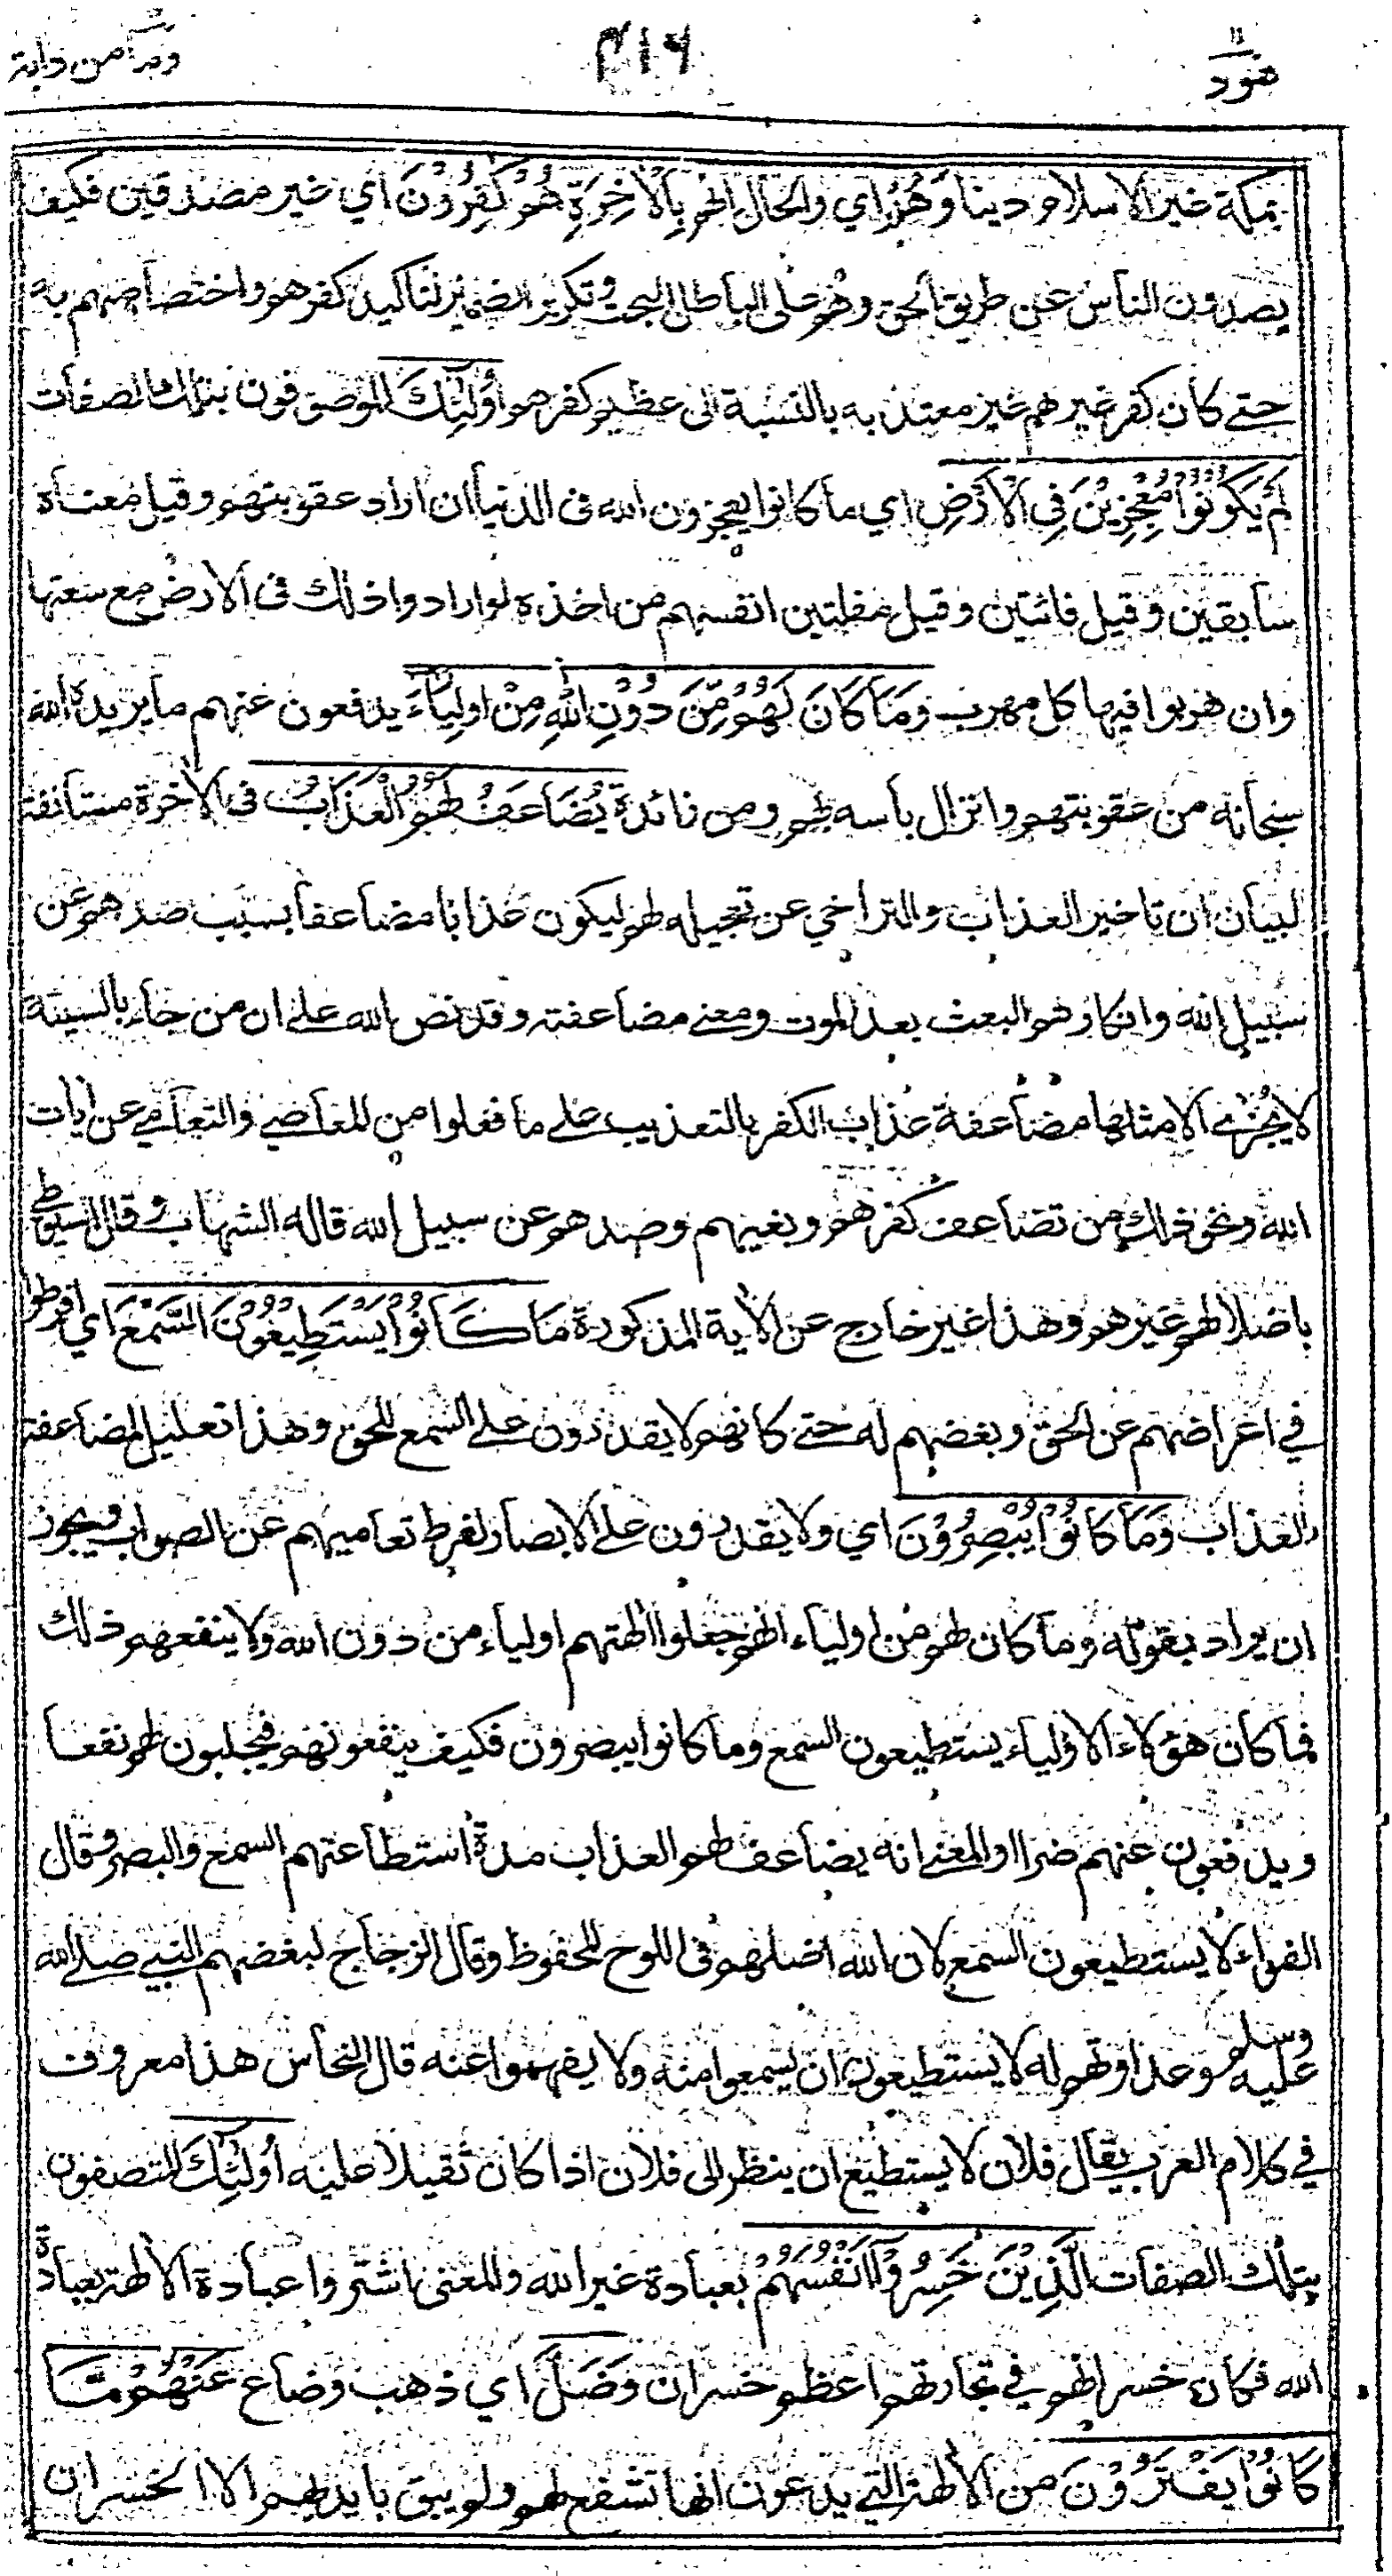 هود ١١
٣١٦
وما من دابة
بملة غير الاسلام دينا وَهُمْ اي والحال انهم بِالْاٰخِرَةِ هُمْ كٰفِرُوْنَ اي غير مصدقين فكيف
يصدون الناس عن طريق الحق وهم على الباطل البحت وتكرير الضمير لتاكيد كفرهم واختصاصهم به
حتى كان كفر غيرهم غير معتد به بالنسبة الى عظيم كفرهم اُولٰٓئِكَ الموصوفون بتلك الصفات
لَمْ يَكُوْنُوْا مُعْجِزِيْنَ فِى الْاَرْضِ اي ما كانوا يعجزون الله فى الدنيا ان اراد عقوبتهم وقيل معناه
سابقين وقيل فائتين وقيل مفلتين انفسهم من اخذه لو ارادوا ذلك فى الارض مع سعتها
وان هربوا فيها كل مهرب وَمَا كَانَ لَهُمْ مِّنْ دُوْنِ اللهِ مِنْ اَوْلِيَآءَ يدفعون عنهم ما يريده الله
سبحانه من عقوبتهم وانزال بأسه بهم ومن زائدة يُضَاعَفُ لَهُمُ الْعَذَابُ فى الاخرة مستأنفة
لبيان ان تاخير العذاب والتراخي عن تعجيله لهم ليكون عذابا مضاعفا بسبب صدهم عن
سبيل الله وانكارهم البعث بعد الموت ومعنى مضاعفته وقد نص الله على ان من جاء بالسيئة
لا يجزى الا مثلها مضاعفة عذاب الكفر بالتعذيب على ما فعلوا من المعاصي والتعامي عن ايات
الله ونحو ذلك من تضاعف كفرهم وبغيهم وصدهم عن سبيل الله قاله الشهاب وقال السيوطي
باضلالهم غيرهم وهذا غير خارج عن الاية المذكورة مَا كَانُوْا يَسْتَطِيْعُوْنَ السَّمْعَ اي افرطوا
في اعراضهم عن الحق وبغضهم له حتى كانهم لا يقدرون على السمع للحق وهذا تعليل لمضاعفة
العذاب وَمَا كَانُوْا يُبْصِرُوْنَ اي ولا يقدرون على الابصار لفرط تعاميهم عن الصواب ويجوز
ان يراد بقوله وما كان لهم من اولياء انهم جعلوا الهتهم اولياء من دون الله ولا ينفعهم ذلك
فما كان هؤلاء الاولياء يستطيعون السمع وما كانوا يبصرون فكيف ينفعونهم فيجلبون لهم نفعا
ويدفعون عنهم ضرا والمعنى انه يضاعف لهم العذاب مدة استطاعتهم السمع والبصر وقال
الفراء لا يستطيعون السمع لان الله اضلهم فى اللوح المحفوظ وقال الزجاج لبغضهم النبي صلى الله
عليه وسلم وعداوتهم له لا يستطيعون ان يسمعوا منه ولا يفهموا عنه قال النحاس هذا معروف
في كلام العرب يقال فلان لا يستطيع ان ينظر الى فلان اذا كان ثقيلا عليه اُولٰٓئِكَ المتصفون
بتلك الصفات الَّذِيْنَ خَسِرُوْا اَنْفُسَهُمْ بعبادة غير الله والمعنى اشتروا عبادة الالهة بعبادة
الله فكان خسرانهم في تجارتهم اعظم خسران وَضَلَّ اي ذهب وضاع عَنْهُمْ مَّا
كَانُوْا يَفْتَرُوْنَ من الالهة التي يدعون انها تشفع لهم ولم يبق بايديهم الا الخسران